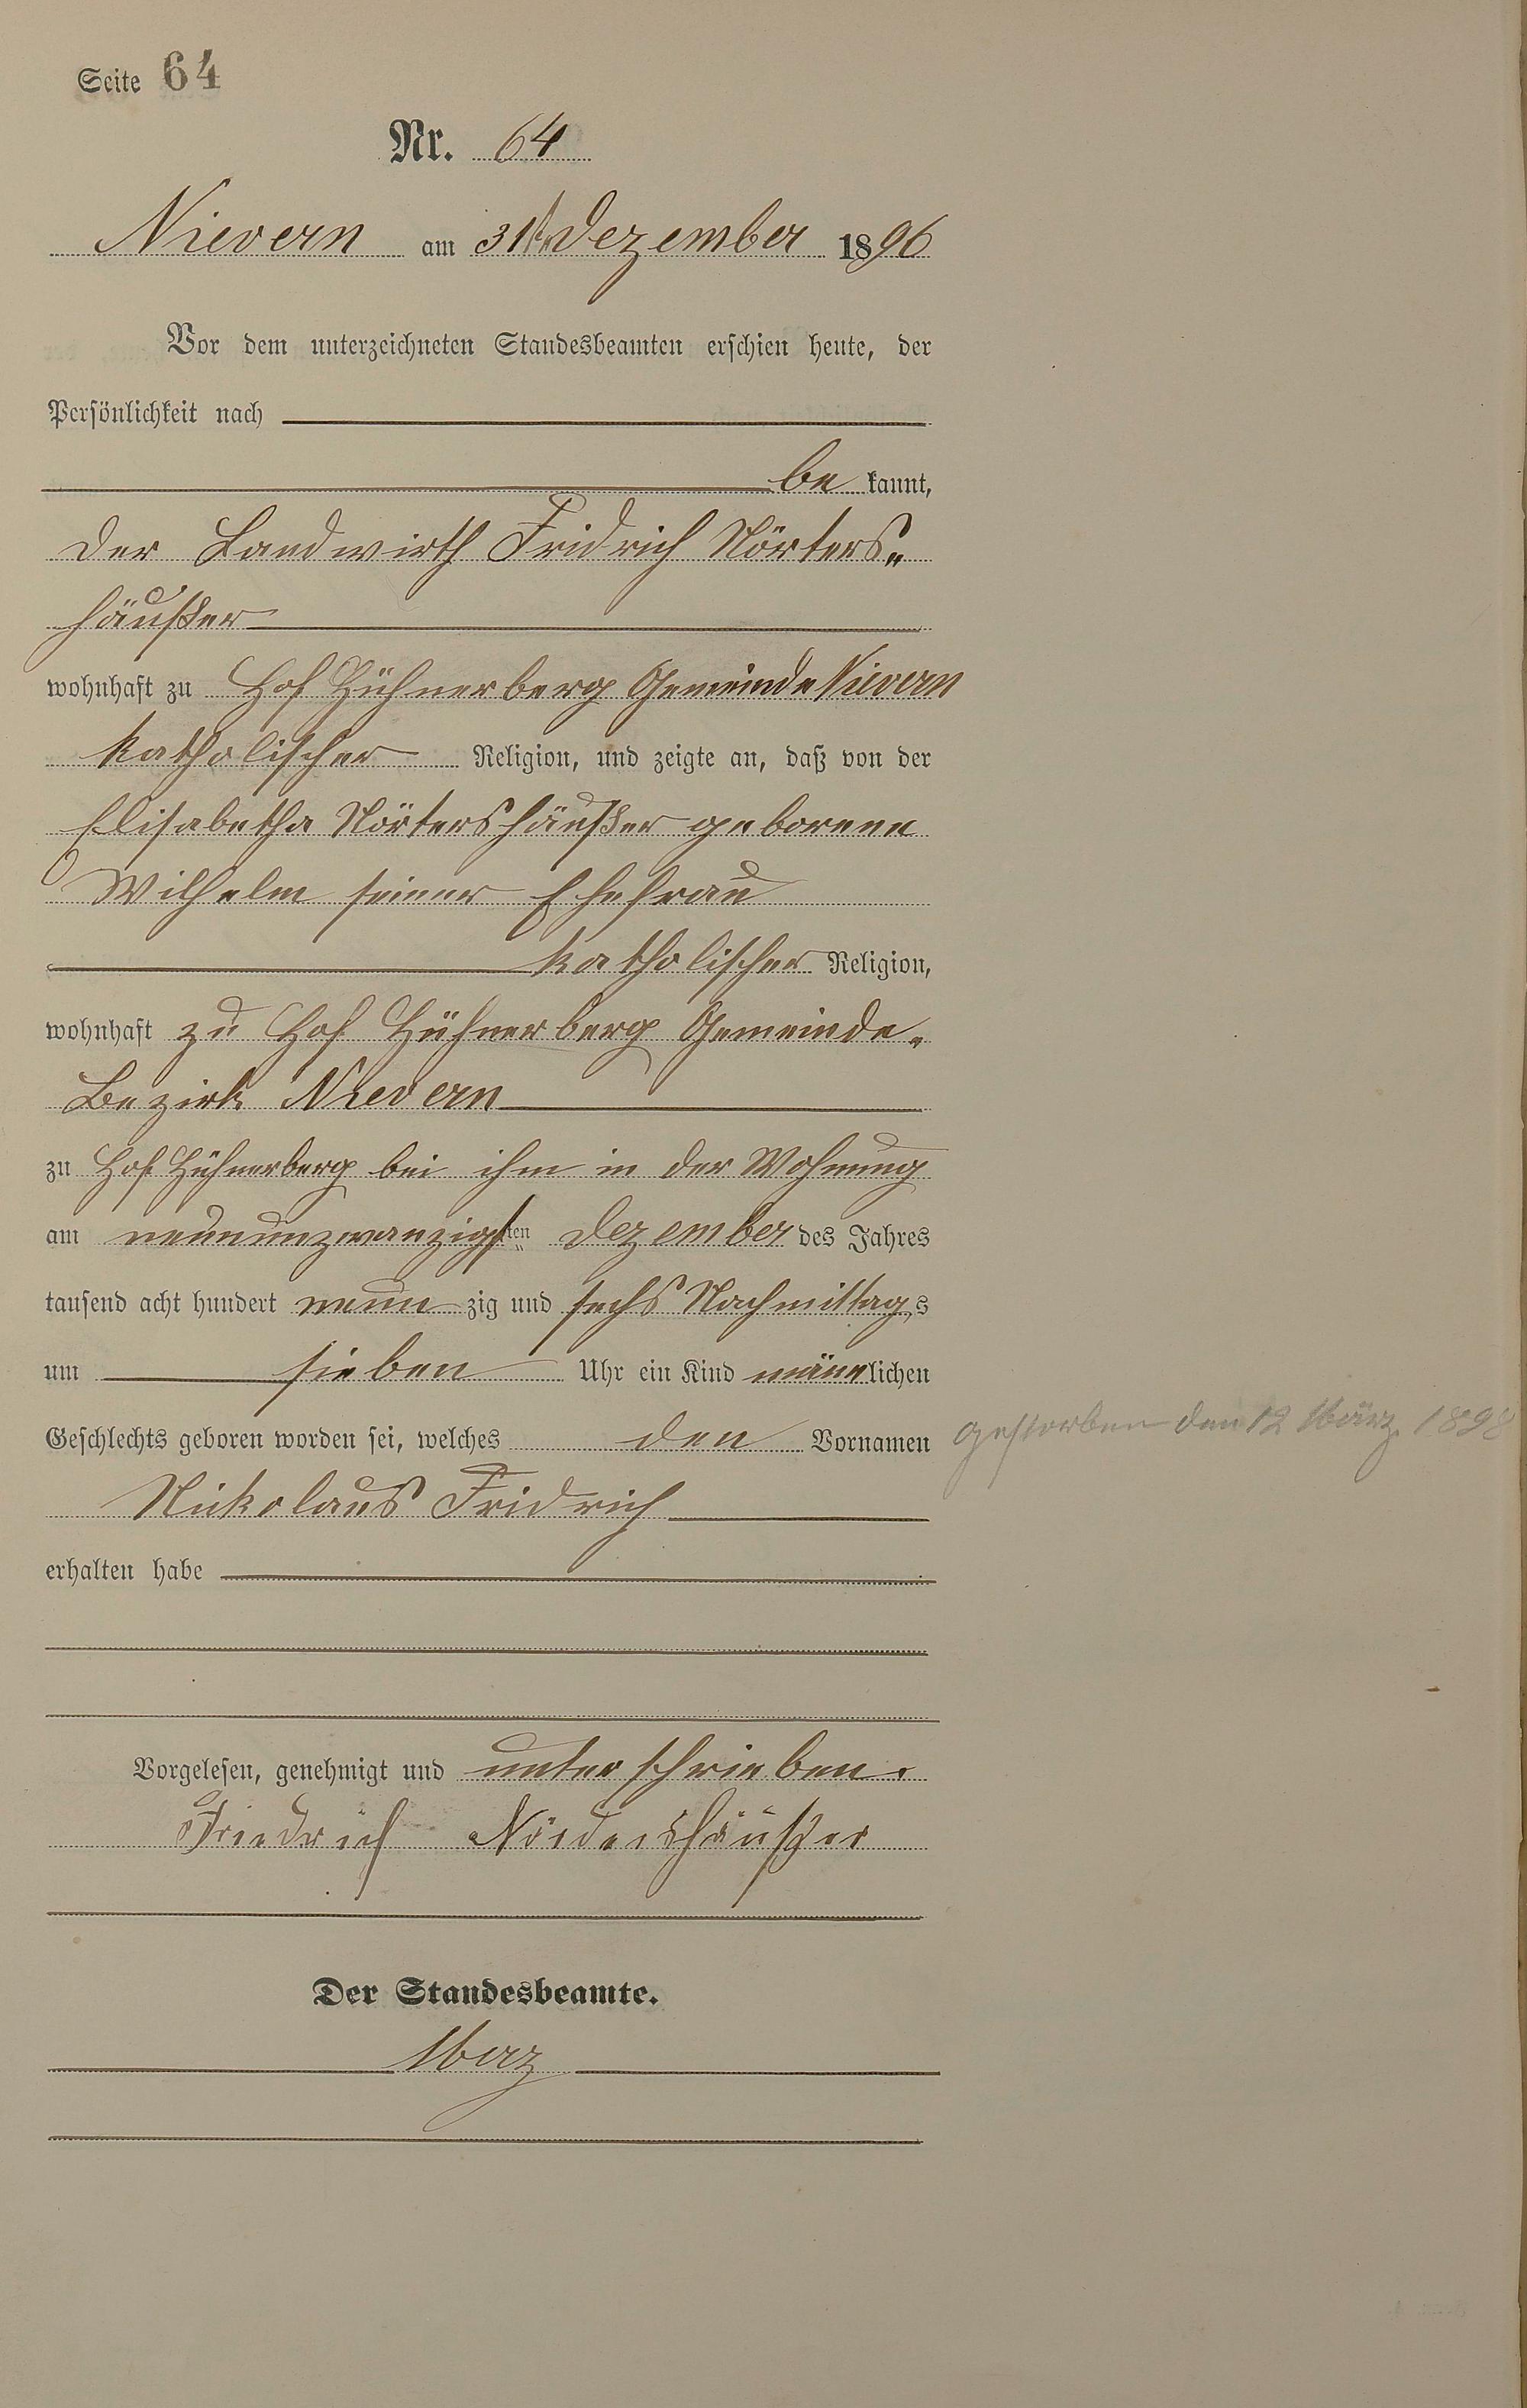 Seite 64
Nr. 64
Nievern am 31ten Dezember 1896
Vor dem unterzeichneten Standesbeamten erschien heute, der
Persönlichkeit nach
be kannt,
der Landwirth Fridrich Nörters„
häußer
wohnhaft zu Hof Hühnerberg Gemeinde Nievern
katholischer Religion, und zeigte an, daß von der
Elisabetha Nörtershäußer geborene
Wilhelm seiner Ehefrau
katholischer Religion,
wohnhaft zu Hof Hühnerberg Gemeinde„
Bezirk Nievern
zu Hof Hühnerberg bei ihm in der Wohnung
am neunundzwanzigsten Dezember des Jahres
tausend acht hundert neun zig und sechs Nachmittags
um sieben Uhr ein Kind männlichen
Geschlechts geboren worden sei, welches den Vornamen
gestorben den 12 März 1898
Nickolaus Fridrich
erhalten habe
Vorgelesen, genehmigt und unterschrieben.
Friedrich Nördershäußer
Der Standesbeamte.